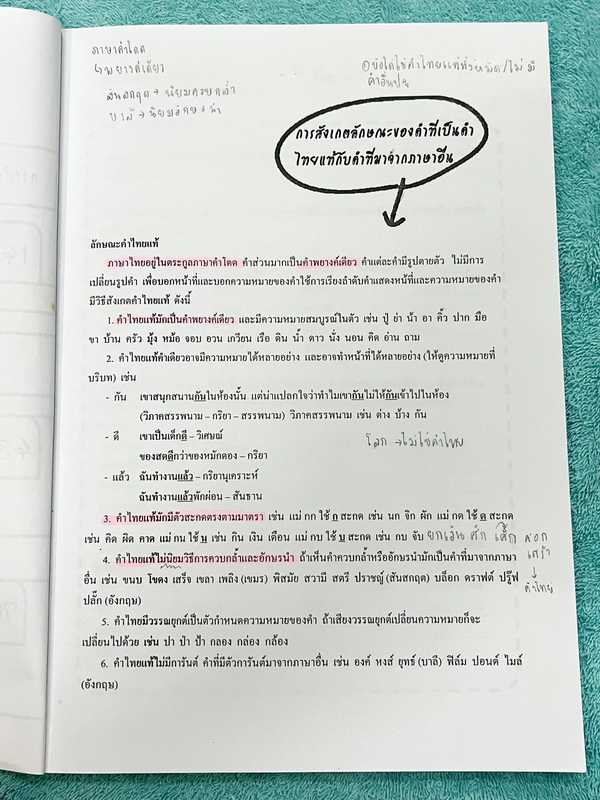 ภาษาคำโดด
↳พยางค์เดียว
สันสกฤต → นิยมควบกล้ำ
บาลี → นิยมอักษรนำ
คำไทยแท้ทั้งหมด/ไม่มี
คำอื่นปน
การสังเกตลักษณะของคำที่เป็นคำ
ไทยแท้กับคำที่มาจากภาษาอื่น
ลักษณะคำไทยแท้
ภาษาไทยอยู่ในตระกูลภาษาคำโดด คำส่วนมากเป็นคำพยางค์เดียว คำแต่ละคำมีรูปตายตัว ไม่มีการ
เปลี่ยนรูปคำ เพื่อบอกหน้าที่และบอกความหมายของคำใช้การเรียงลำดับคำแสดงหน้าที่และความหมายของคำ
มีวิธีสังเกตคำไทยแท้ ดังนี้
1. คำไทยแท้มักเป็นคำพยางค์เดียว และมีความหมายสมบูรณ์ในตัว เช่น ปู่ ย่า น้า อา คิ้ว ปาก มือ
ขา บ้าน ครัว มุ้ง หม้อ จอบ อวน เกวียน เรือ ดิน น้ำ ดาว นั่ง นอน คิด อ่าน ถาม
2. คำไทยแท้คำเดียวอาจมีความหมายได้หลายอย่าง และอาจทำหน้าที่ได้หลายอย่าง (ให้ดูความหมายที่
บริบท) เช่น
- กัน เขาสนุกสนานกันในห้องนั้น แต่น่าแปลกใจว่าทำไมเขากันไม่ให้กันเข้าไปในห้อง
(วิภาคสรรพนาม – กริยา – สรรพนาม) วิภาคสรรพนาม เช่น ต่าง บ้าง กัน
- ดี เขาเป็นเด็กดี – วิเศษณ์
โลภ → ไม่ใช่คำไทย
ของสดดีกว่าของหมักดอง – กริยา
- แล้ว ฉันทำงานแล้ว – กริยานุเคราะห์
ฉันทำงานแล้วพักผ่อน – สันธาน
3. คำไทยแท้มักมีตัวสะกดตรงตามมาตรา เช่น แม่ กก ใช้ ก สะกด เช่น นก จิก ผัก แม่ กด ใช้ ด สะกด
เช่น คิด ผิด คาด แม่ กน ใช้ น เช่น กิน เงิน เดือน แม่ กบ ใช้ บ สะกด เช่น กบ จับ ยกเว้น ศึก เศิก ศอก
เศร้า
↓
คำไทย
4. คำไทยแท้ไม่นิยมวิธีการควบกล้ำและอักษรนำ ถ้าเห็นคำควบกล้ำหรืออักษรนำมักเป็นคำที่มาจากภาษา
อื่น เช่น ขนบ โขดง เสร็จ เขลา เพลิง (เขมร) พิสมัย สวามี สตรี ปราชญ์ (สันสกฤต) บล็อก ดราฟต์ ปรู๊ฟ
ปลั๊ก (อังกฤษ)
5. คำไทยมีวรรณยุกต์เป็นตัวกำหนดความหมายของคำ ถ้าเสียงวรรณยุกต์เปลี่ยนความหมายก็จะ
เปลี่ยนไปด้วย เช่น ปา ป่า ป้า กลอง กล่อง กล้อง
6. คำไทยแท้ไม่มีการันต์ คำที่มีตัวการันต์มาจากภาษาอื่น เช่น องค์ หงส์ ยุทธ์ (บาลี) ฟิล์ม ปอนด์ ไมล์
(อังกฤษ)